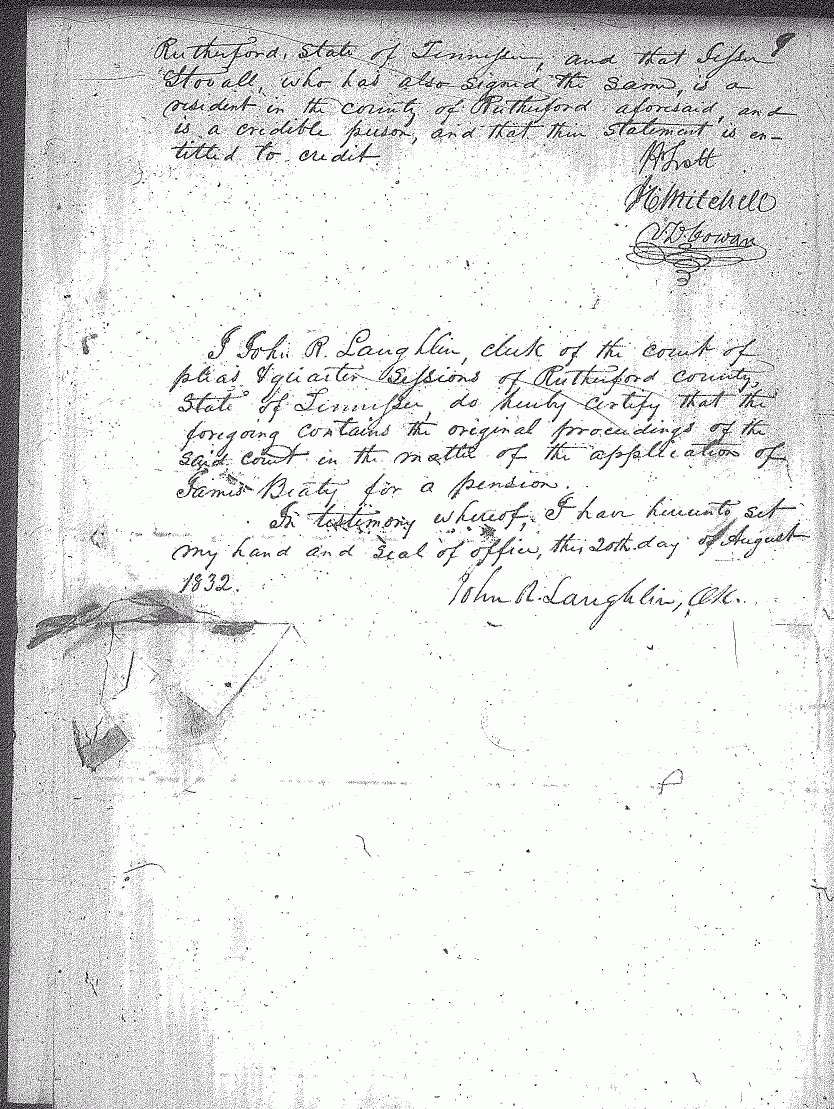 9
Rutherford, State of Tennessee, and that Jesse
Stovall, who has also signed the same, is a
resident in the county of Rutherford aforesaid, and
is a credible person, and that their statement is en-
titled to credit
Trott
Mitchell
Cowan
I John R. Laughlin, clerk of the court of
pleas & quarter Sessions of Rutherford county,
State of Tennessee, do hereby certify that the
foregoing contains the original proceedings of the
said court in the matter of the application of
James Beaty for a pension.
In testimony whereof, I have hereunto set
my hand and seal of office, this 20th day of August
1832.
John R. Laughlin, Clk.